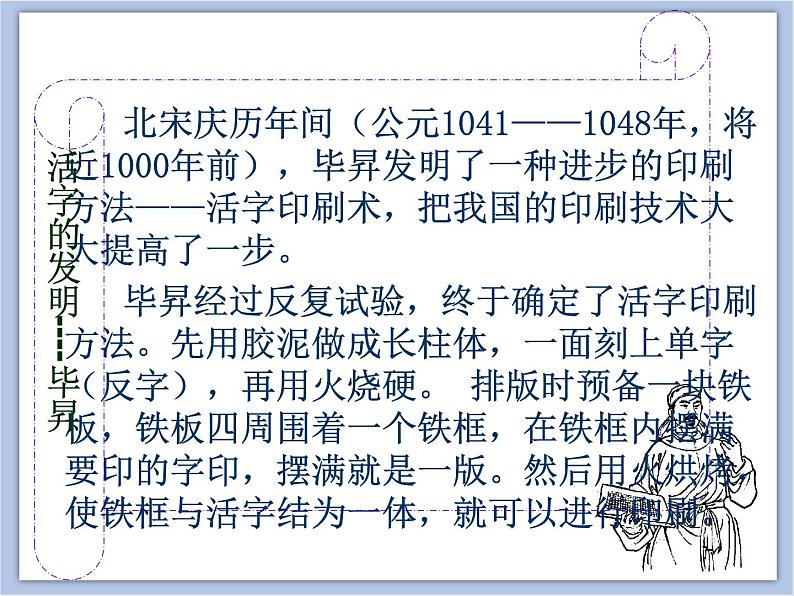 北宋庆历年间（公元1041——1048年，将
近1000年前），毕昇发明了一种进步的印刷
方法——活字印刷术，把我国的印刷技术大
大提高了一步。
毕昇经过反复试验，终于确定了活字印刷
方法。先用胶泥做成长柱体，一面刻上单字
（反字），再用火烧硬。 排版时预备一块铁
板，铁板四周围着一个铁框，在铁框内摆满
要印的字印，摆满就是一版。然后用火烘烤，
使铁框与活字结为一体，就可以进行印刷。
活字的发明----毕昇